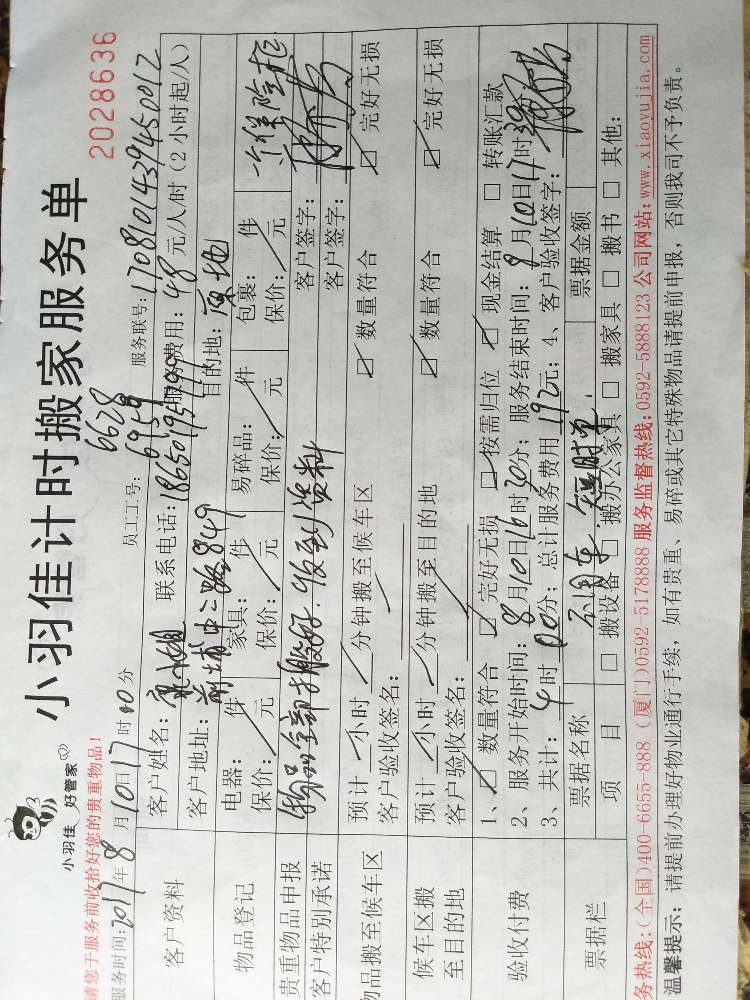 小羽佳计时搬家服务单
2028636
小羽佳 好管家
请您于服务前收拾好您的贵重物品!
员工工号: 6628 6959
服务联号: 170810143945 0012
服务时间: 2017年8月10日17时00分
客户资料
客户姓名: 联系电话: 18650195799 服务费用: 48 元/人/时 (2小时起/人)
客户地址: 前埔中二路849 目的地: 原地
物品登记
电器: 件 家具: 件 易碎品: 件 包裹: 件
保价: 元 保价: 元 保价: 元 保价: 元
贵重物品申报 物品全部搬好.收到资料 客户签字:
客户特别承诺 客户签字:
物品搬至候车区
预计 小时 分钟搬至候车区 ☑ 数量符合 ☑ 完好无损
客户验收签名:
候车区搬至目的地
预计 小时 分钟搬至目的地 ☑ 数量符合 ☑ 完好无损
客户验收签名:
验收付费
1、☑ 数量符合 ☑ 完好无损 ☑ 按需归位 ☑ 现金结算 □ 转账汇款
2、服务开始时间: 8月10日16时30分; 服务结束时间: 8月10日17时30
3、共计: 4时00分; 总计服务费用 192元; 4、客户验收签字:
票据栏
票据名称 不用车 短时单. 票据金额
项目 □ 搬设备 □ 搬办公家具 □ 搬家具 □ 搬书 □ 其他:
务热线: (全国)400-6655-888 (厦门)0592-5178888 服务监督热线: 0592-5888123 公司网站: www.xiaoyujia.com
温馨提示: 请提前办理好物业通行手续, 如有贵重、易碎或其它特殊物品请提前申报, 否则我司不予负责。